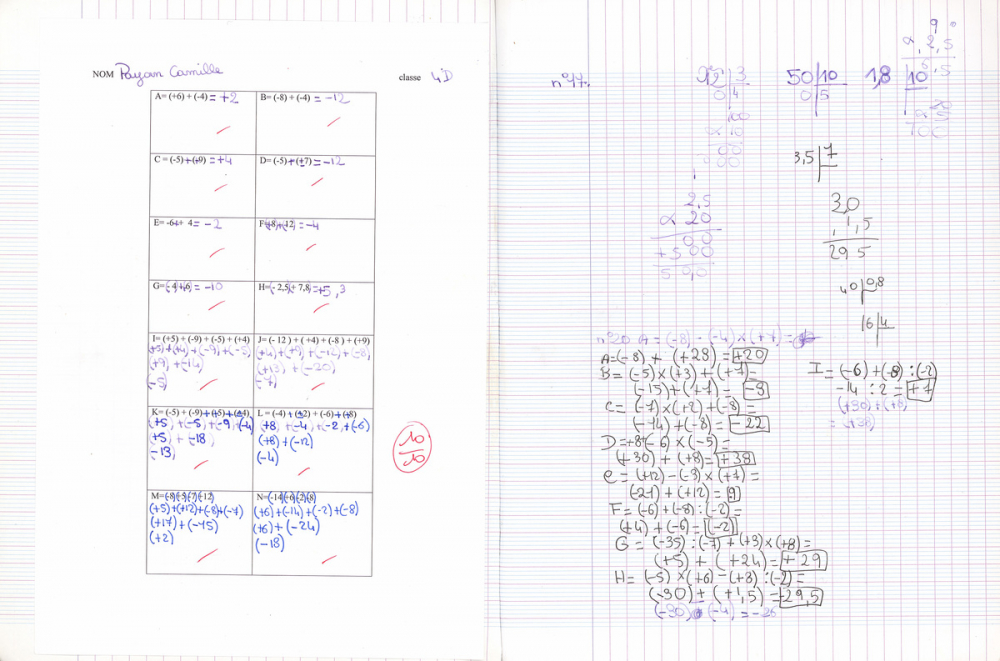 NOM Payan Camille
classe 4D
A= (+6) + (-4) = +2
B= (-8) + (-4) = -12
C = (-5) + (+9) = +4
D= (-5) + (+7) = -12
E= -6+ 4 = -2
F= +8)+(-12) = -4
G= (-4)+(-6) = -10
H=(- 2,5)+ 7,8) = +5,3
I= (+5) + (-9) + (-5) + (+4)
(+5)+(+4)+(-9)+(-5)
(+9) + (-14)
(-5)
J= (- 12 ) + ( +4) + (-8 ) + (+9)
(+4)+(+9)+(-12)+(-8)
(+13) + (-20)
(-7)
K= (-5) + (-9) + (+5) + (-4)
(+5) + (-5) + (-9) + (-4)
(+5) + -18)
-13)
L = (-4) + (-2) + (-6) + (+8)
(+8) + (-4) + (-2) + (-6)
(+8) + (-12)
(-4)
M=(-8)(+5)(-7)(+12)
(+5)+(+12)+(-8)+(-7)
(+17)+(-15)
(+2)
N=(-14)(+6)(-2)(-8)
(+6)+(-14)+(-2)+(-8)
(+6)+(-24)
(-18)
10
10
n°47.
12 3
0 4
50 10
0 5
1,8 10
3,5 7
2,5
× 20
00
+500
50,0
30
, 1,5
29 5
40 0,8
16 4
n°20 A = (-8) - (-4) × (+7) =
A= (-8) + (+28) = +20
B = (-5) × (+3) + (+7) =
(-15) + (+7) = -8
C = (-7) × (+2) + (-8) =
(-14) + (-8) = -22
D = +8 + (-6) × (-5) =
(+30) + (+8) = +38
e = (+12) - (-3) × (+7) =
(-21) + (+12) = 9
F = (-6) + (-8) : (-2) =
(+4) + (-6) = (-2)
G = (-35) : (-7) + (+3) × (+8) =
(+5) + (+24) = +29
H = (-5) × (+6) - (+3) : (-2) =
(-30) + (+1,5) = -29,5
(-30) (-4) = -26
I = (-6) + (-8) : (-2)
-14 : 2 = +7
(+30) + (+6)
= (+36)